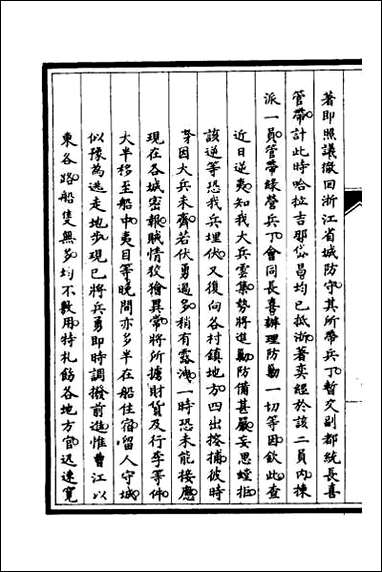 著即照議徹回浙江省城防守其所帶兵丁暫交副都統長喜
管帶計此時哈拉吉那岱昌均已抵浙著奕經於該二員內揀
派一員管帶綠營兵丁會同長喜辦理防勦一切等因欽此查
近日逆夷知我大兵雲集勢將進勦防備甚嚴妄思螳拒
該逆等恐我兵埋伏又復向各村鎮地方四出搜捕彼時
因大兵未齊若伏勇過多稍有露洩一時恐未能接應
現在各城密報賊情狡獪異常將所擄財貨及行李等件
大半移至船中夷目等晚間亦多半在船住宿留人守城
似豫為逃走地步現已將兵勇即時調撥前進惟曹江以
東各路船隻無多均不敷用特札飭各地方官迅速寬